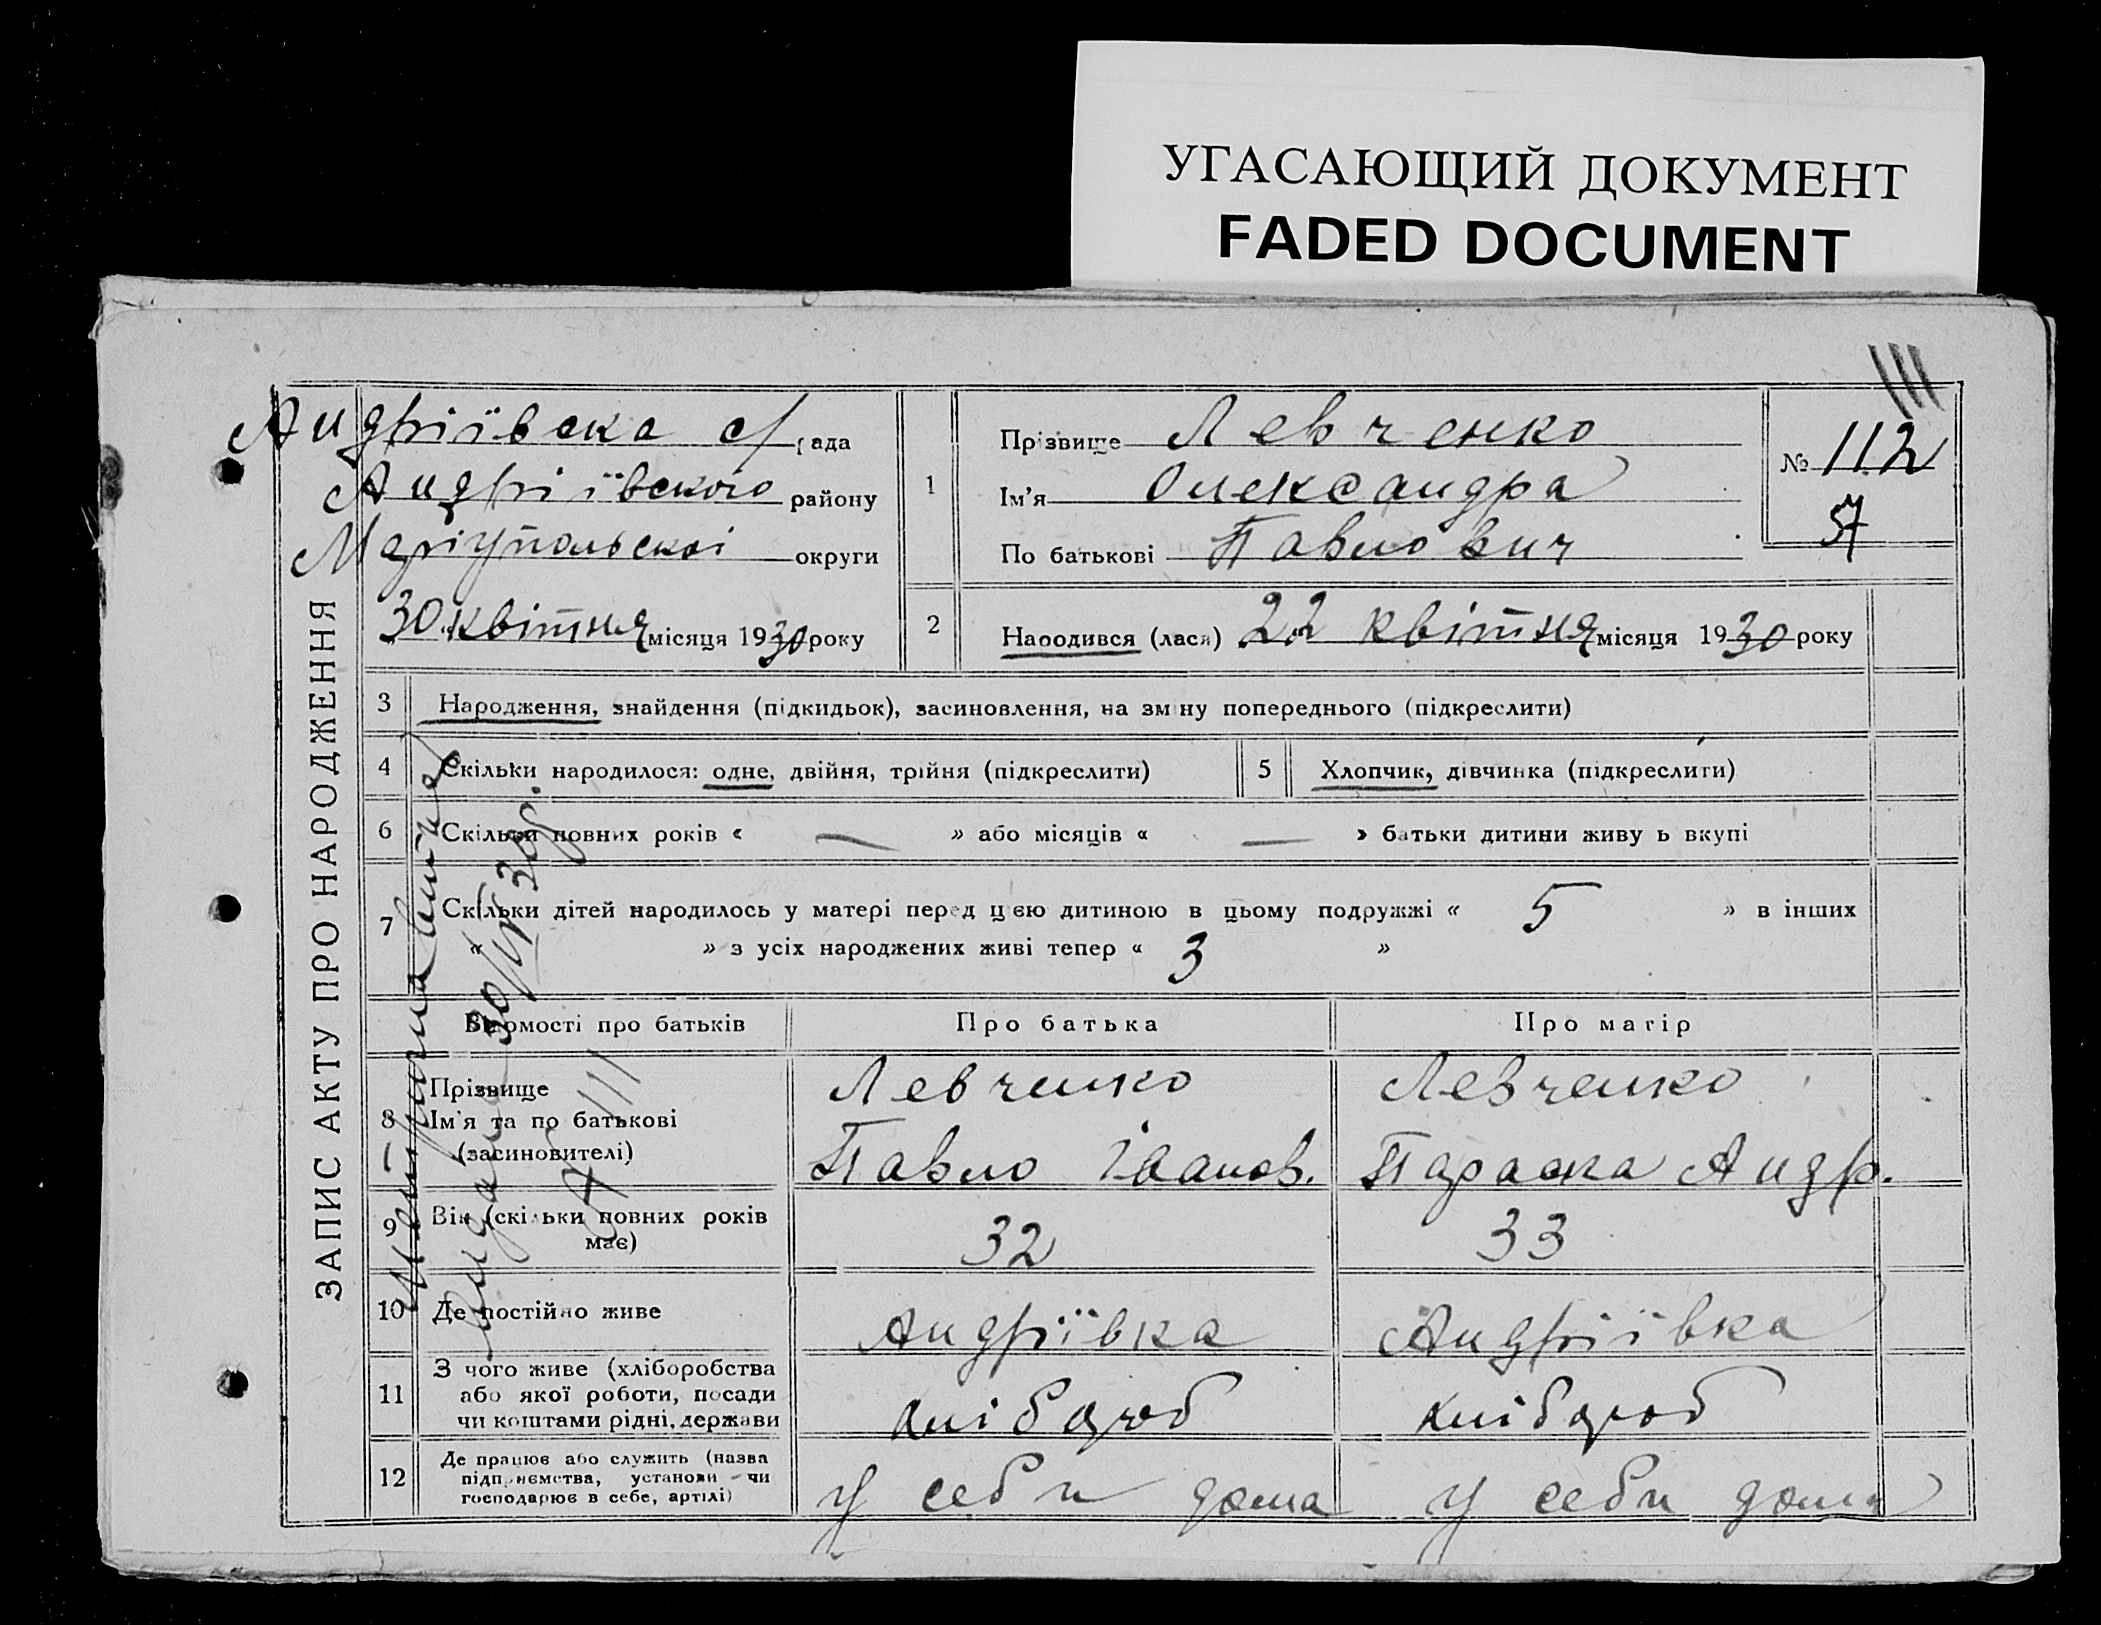 УГАСАЮЩИЙ ДОКУМЕНТ
FADED DOCUMENT
ЗАПИС АКТУ ПРО НАРОДЖЕННЯ
Андріївска с/рада
Андріївского району
Маріупольскоі округи
30 квітня місяця 1930 року
1
Прізвище Левченко
Ім'я Олександра
По батькові Павлович
№ 112
57
2 Народився (лася) 22 квітня місяця 1930 року
3 Народження, знайдення (підкидьок), засиновлення, на зміну попереднього (підкреслити)
4 Скільки народилося: одне, двійня, трійня (підкреслити)
5 Хлопчик, дівчинка (підкреслити)
6 Скільки повних років « — » або місяців « — » батьки дитини живуть вкупі
7 Скільки дітей народилось у матері перед цією дитиною в цьому подружжі « 5 » в інших
« » з усіх народжених живі тепер « 3 »
Відомості про батьків
Про батька
Про матір
8 Прізвище
Ім'я та по батькові
(засиновителі)
Левченко
Павло Іванов.
Левченко
Параска Андр.
9 Вік (скільки повних років
має)
32
33
10 Де постійно живе
Андріївка
Андріївка
11 З чого живе (хліборобства
або якої роботи, посади
чи коштами рідні, держави
хлібороб
хлібороб
12 Де працює або служить (назва
підприємства, установи чи
господарює в себе, артілі)
у себи дома
у себи дома
30/IV 30р.